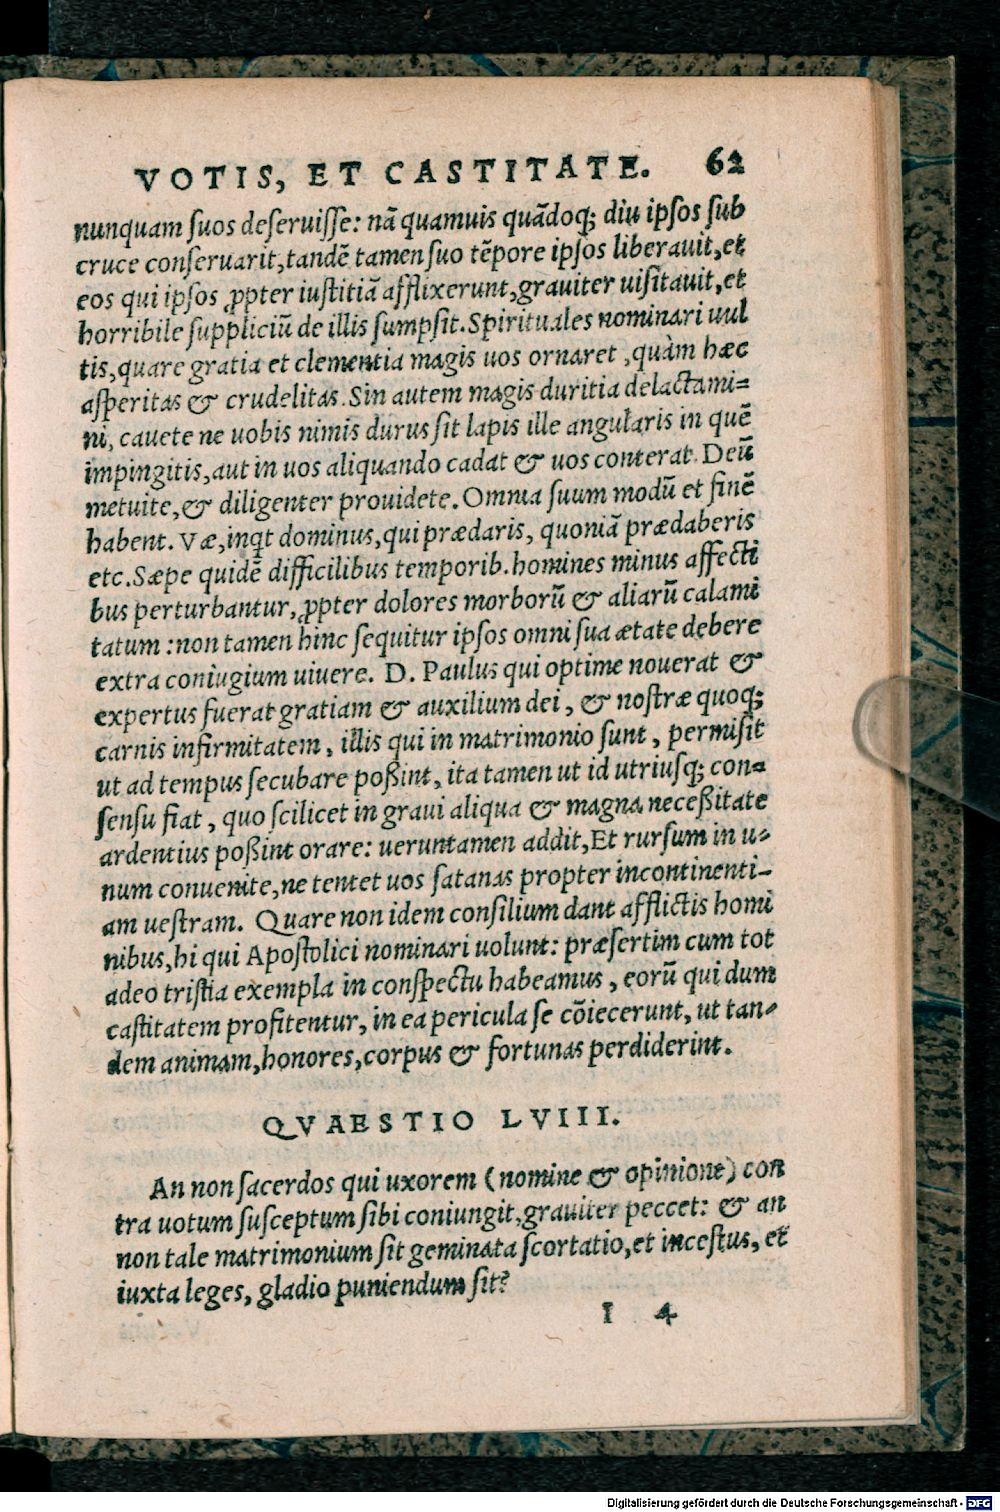 VOTIS, ET CASTITATE. 62
nunquam ſuos deſeruiſſe: nā quamuis quādoq; diu ipſos ſub
cruce conſeruarit,tandē tamen ſuo tēpore ipſos liberauit,et
eos qui ipſos ꝓpter iuſtitiā afflixerunt,grauiter uiſitauit,et
horribile ſuppliciū de illis ſumpſit.Spirituales nominari uul
tis,quare gratia et clementia magis uos ornaret ,quàm hæc
aſperitas & crudelitas.Sin autem magis duritia delactami=
ni, cauete ne uobis nimis durus ſit lapis ille angularis in quē
impingitis,aut in uos aliquando cadat & uos conterat. Deū
metuite,& diligenter prouidete.Omnia ſuum modū et finē
habent.Væ,inqt dominus,qui prædaris, quoniā prædaberis
etc.Sæpe quidē difficilibus temporib.homines minus affecti
bus perturbantur,ꝓpter dolores morborū & aliarū calami
tatum :non tamen hinc ſequitur ipſos omni ſua ætate debere
extra coniugium uiuere. D. Paulus qui optime nouerat &
expertus fuerat gratiam & auxilium dei, & noſtræ quoq;
carnis infirmitatem, illis qui in matrimonio ſunt, permiſit
ut ad tempus ſecubare poßint, ita tamen ut id utriuſq; con=
ſenſu fiat, quo ſcilicet in graui aliqua & magna neceßitate
ardentius poßint orare: ueruntamen addit,Et rurſum in u=
num conuenite,ne tentet uos ſatanas propter incontinenti-
am ueſtram. Quare non idem conſilium dant afflictis homi
nibus,hi qui Apoſtolici nominari uolunt: præſertim cum tot
adeo triſtia exempla in conſpectu habeamus, eorū qui dum
caſtitatem profitentur, in ea pericula ſe cōiecerunt, ut tan=
dem animam,honores,corpus & fortunas perdiderint.
QVAESTIO LVIII.
An non ſacerdos qui uxorem (nomine & opinione) con
tra uotum ſuſceptum ſibi coniungit,grauiter peccet: & an
non tale matrimonium ſit geminata ſcortatio,et inceſtus, et
iuxta leges, gladio puniendum ſit?
I 4
Digitalisierung gefördert durch die Deutsche Forschungsgemeinschaft - DFG